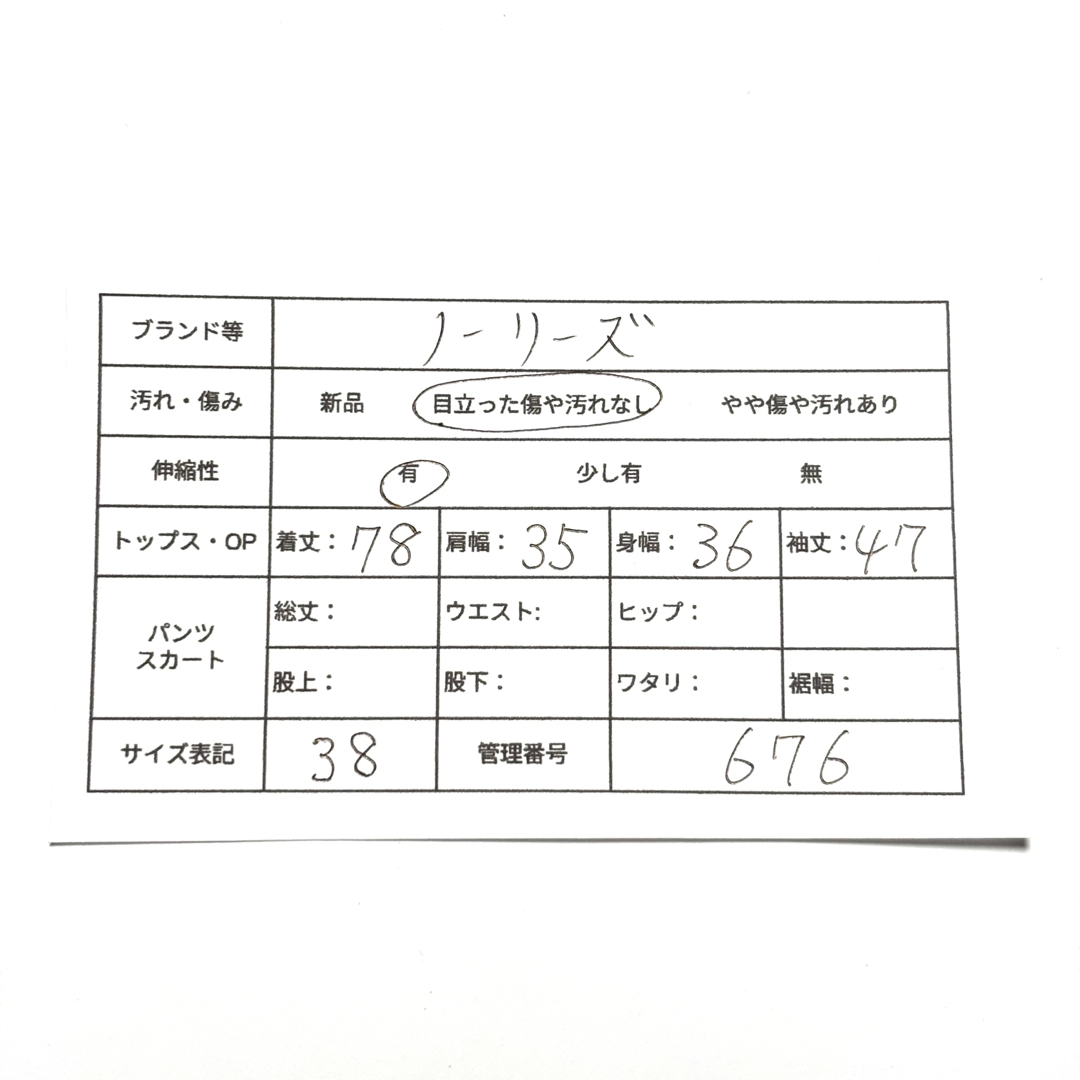 ブランド等 ノーリーズ
汚れ・傷み 新品 目立った傷や汚れなし やや傷や汚れあり
伸縮性 有 少し有 無
トップス・OP 着丈：78 肩幅：35 身幅：36 袖丈：47
パンツ
スカート
総丈： ウエスト: ヒップ：
股上： 股下： ワタリ： 裾幅：
サイズ表記 38 管理番号 676